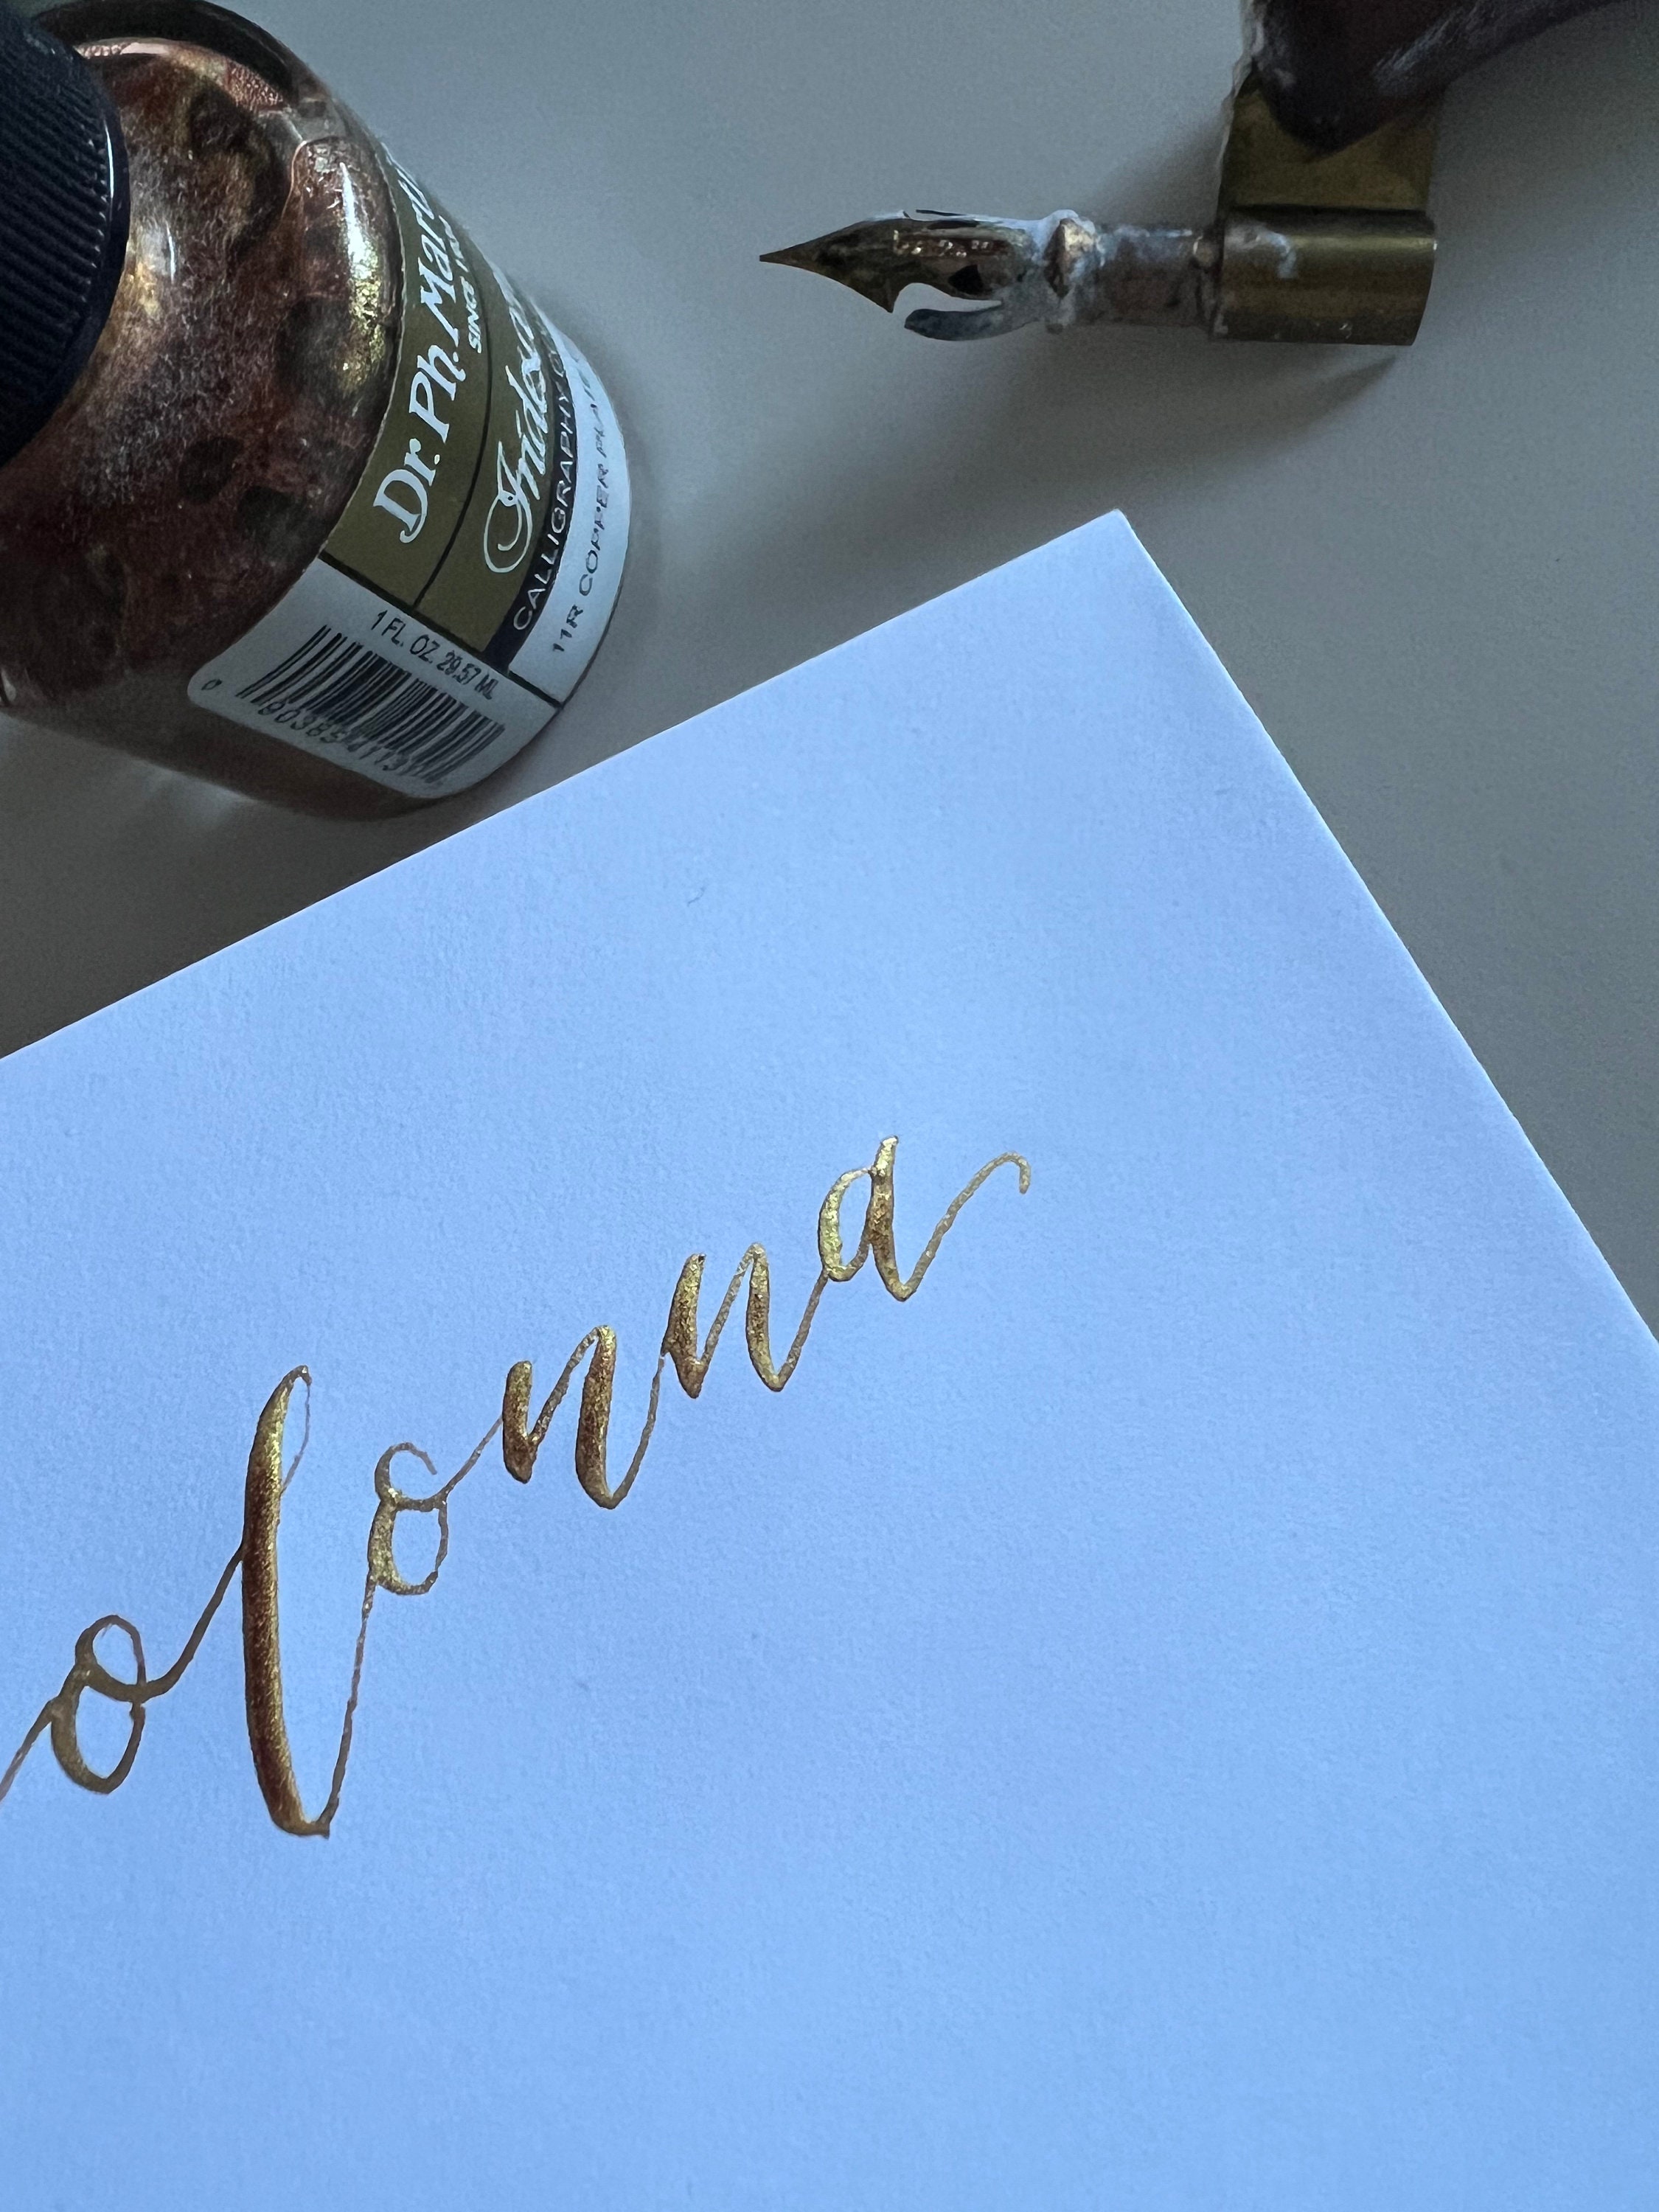 Dr. Ph. Marti
SINCE 19
Iridesc
CALLIGRAPHY CO
11R COPPER PLA
1 FL. OZ. 29.57 ML
olonna